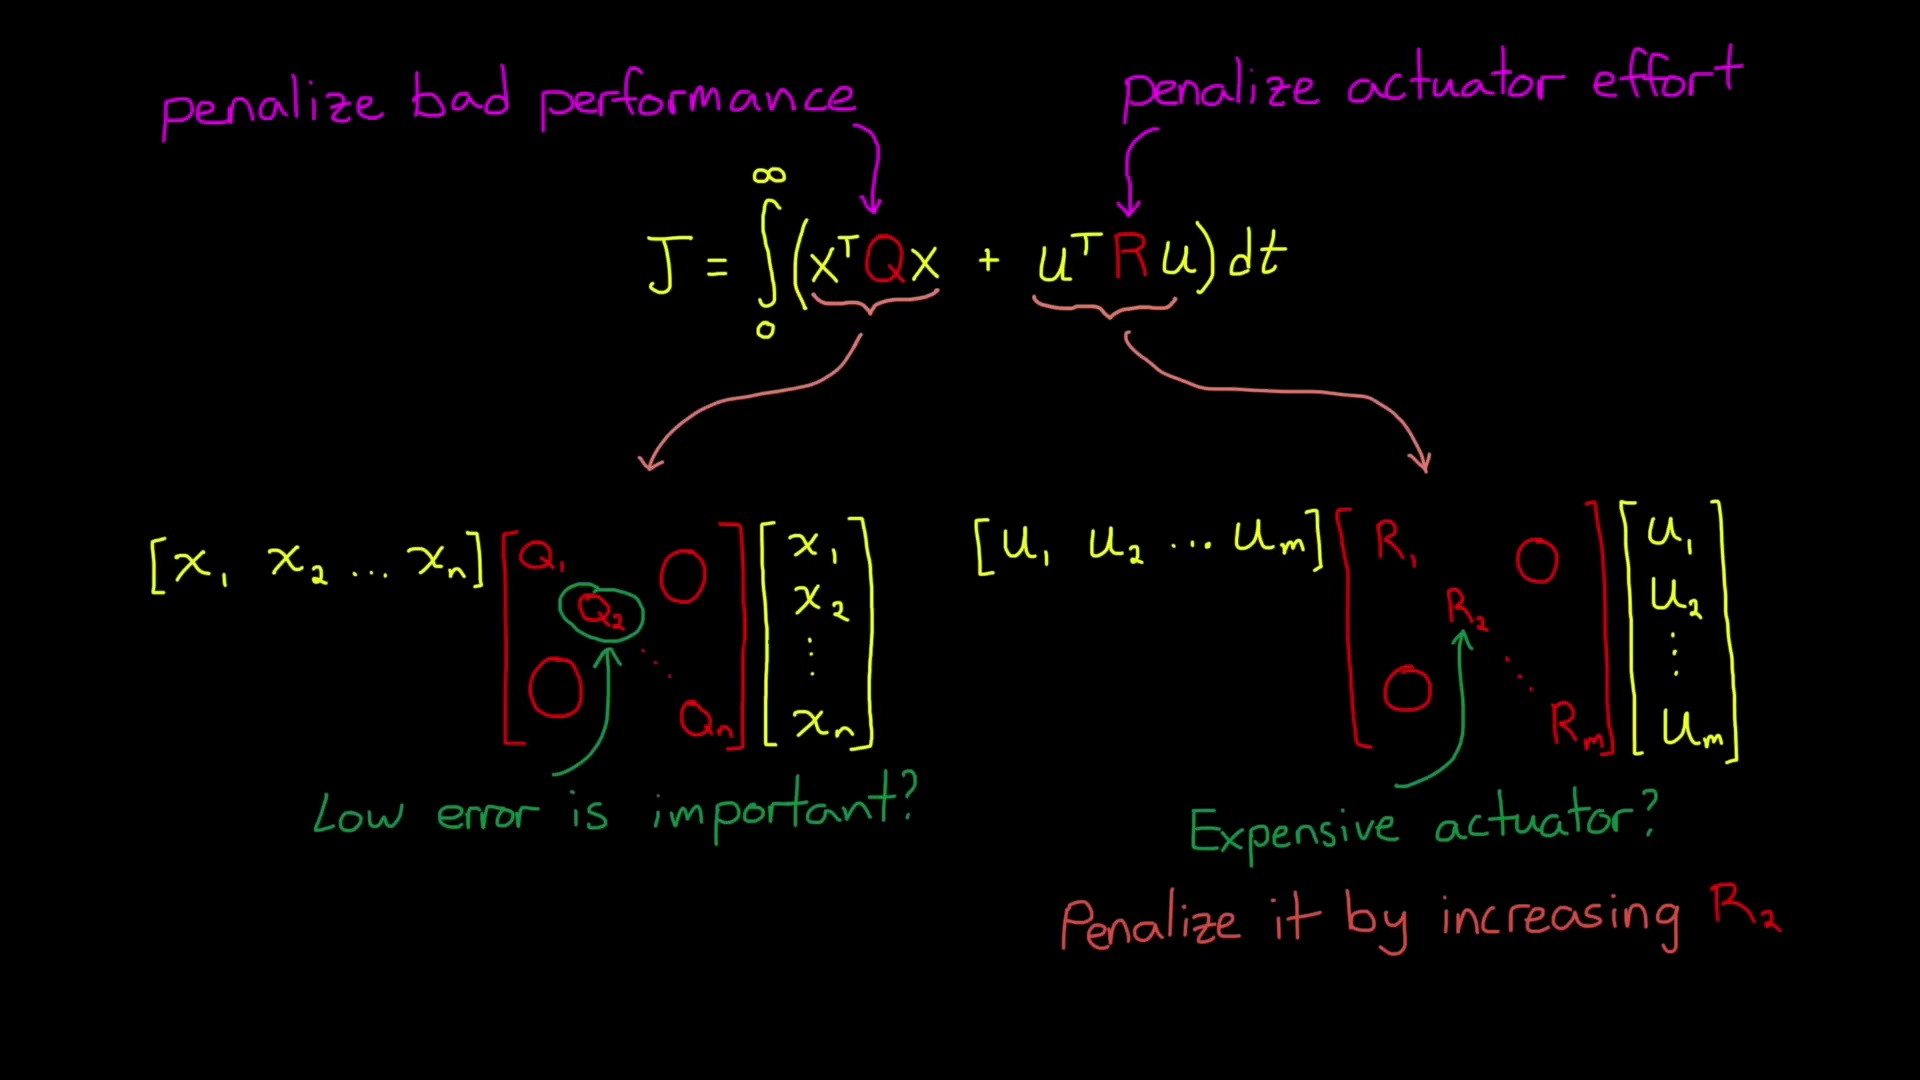 penalize bad performance
penalize actuator effort
J = ∫₀^∞ (xᵀQx + uᵀRu) dt
[x₁ x₂ ... xₙ] [Q₁ Q₂ ⋱ Qₙ 0 0] [x₁ x₂ ⋮ xₙ]
[u₁ u₂ ... uₘ] [R₁ R₂ ⋱ Rₘ 0 0] [u₁ u₂ ⋮ uₘ]
Low error is important?
Expensive actuator?
Penalize it by increasing R₂